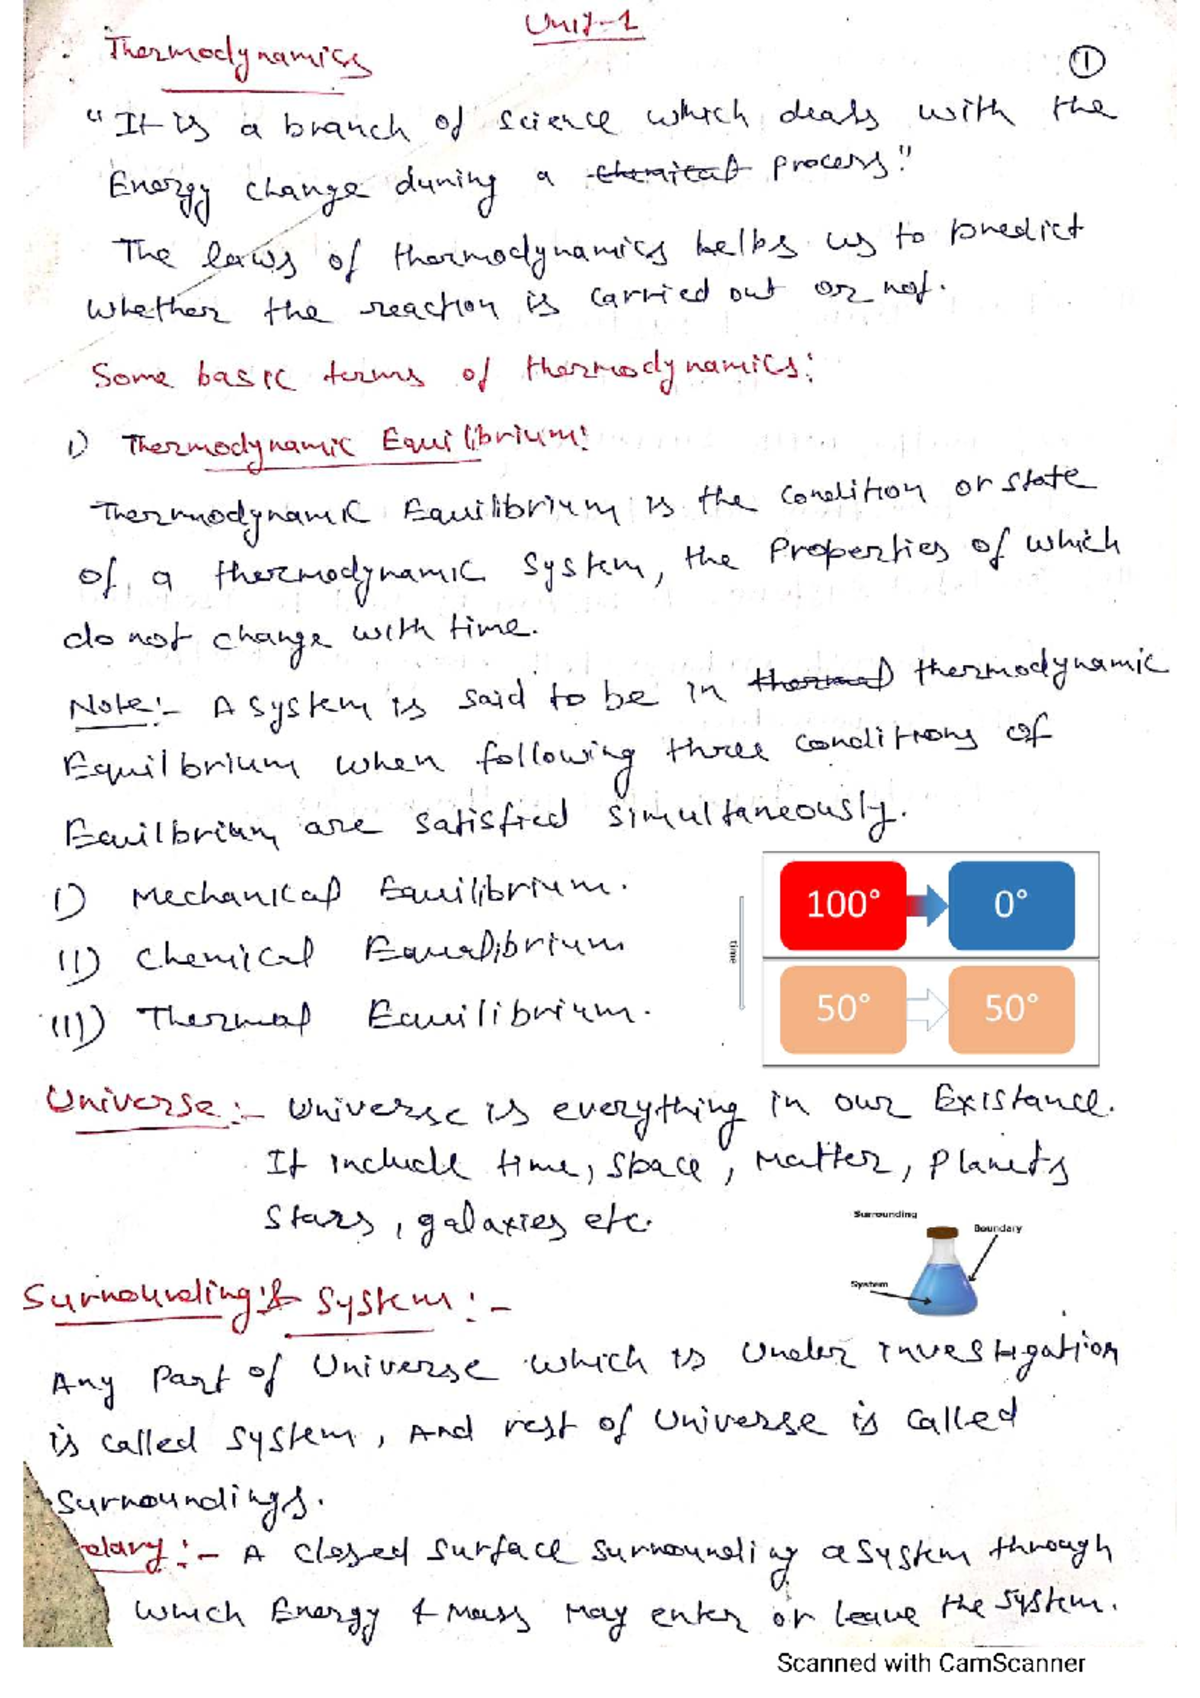 Unit-1
Thermodynamics
1
"It is a branch of science which deals with the
Energy change during a chemical process."
The laws of thermodynamics helps us to predict
whether the reaction is carried out or not.
Some basic terms of thermodynamics:
1) Thermodynamic Equilibrium:
Thermodynamic Equilibrium is the condition or state
of a thermodynamic system, the properties of which
do not change with time.
Note:- A system is said to be in thermal thermodynamic
Equilbrium when following three conditions of
Equilbrium are satisfied simultaneously.
I) Mechanical Equilibrium.
II) Chemical Equilibrium
III) Thermal Equilibrium.
100° 0°
time
50° 50°
Universe:- Universe is everything in our Existance.
It include time, space, Matter, planets
stars, galaxies etc.
Surrounding
Boundary
System
Surrounding & System:-
Any part of Universe which is under investigation
is called system, And rest of universe is called
surroundings.
dary:- A closed surface surrounding a system through
which Energy & Mass may enter or leave the system.
Scanned with CamScanner